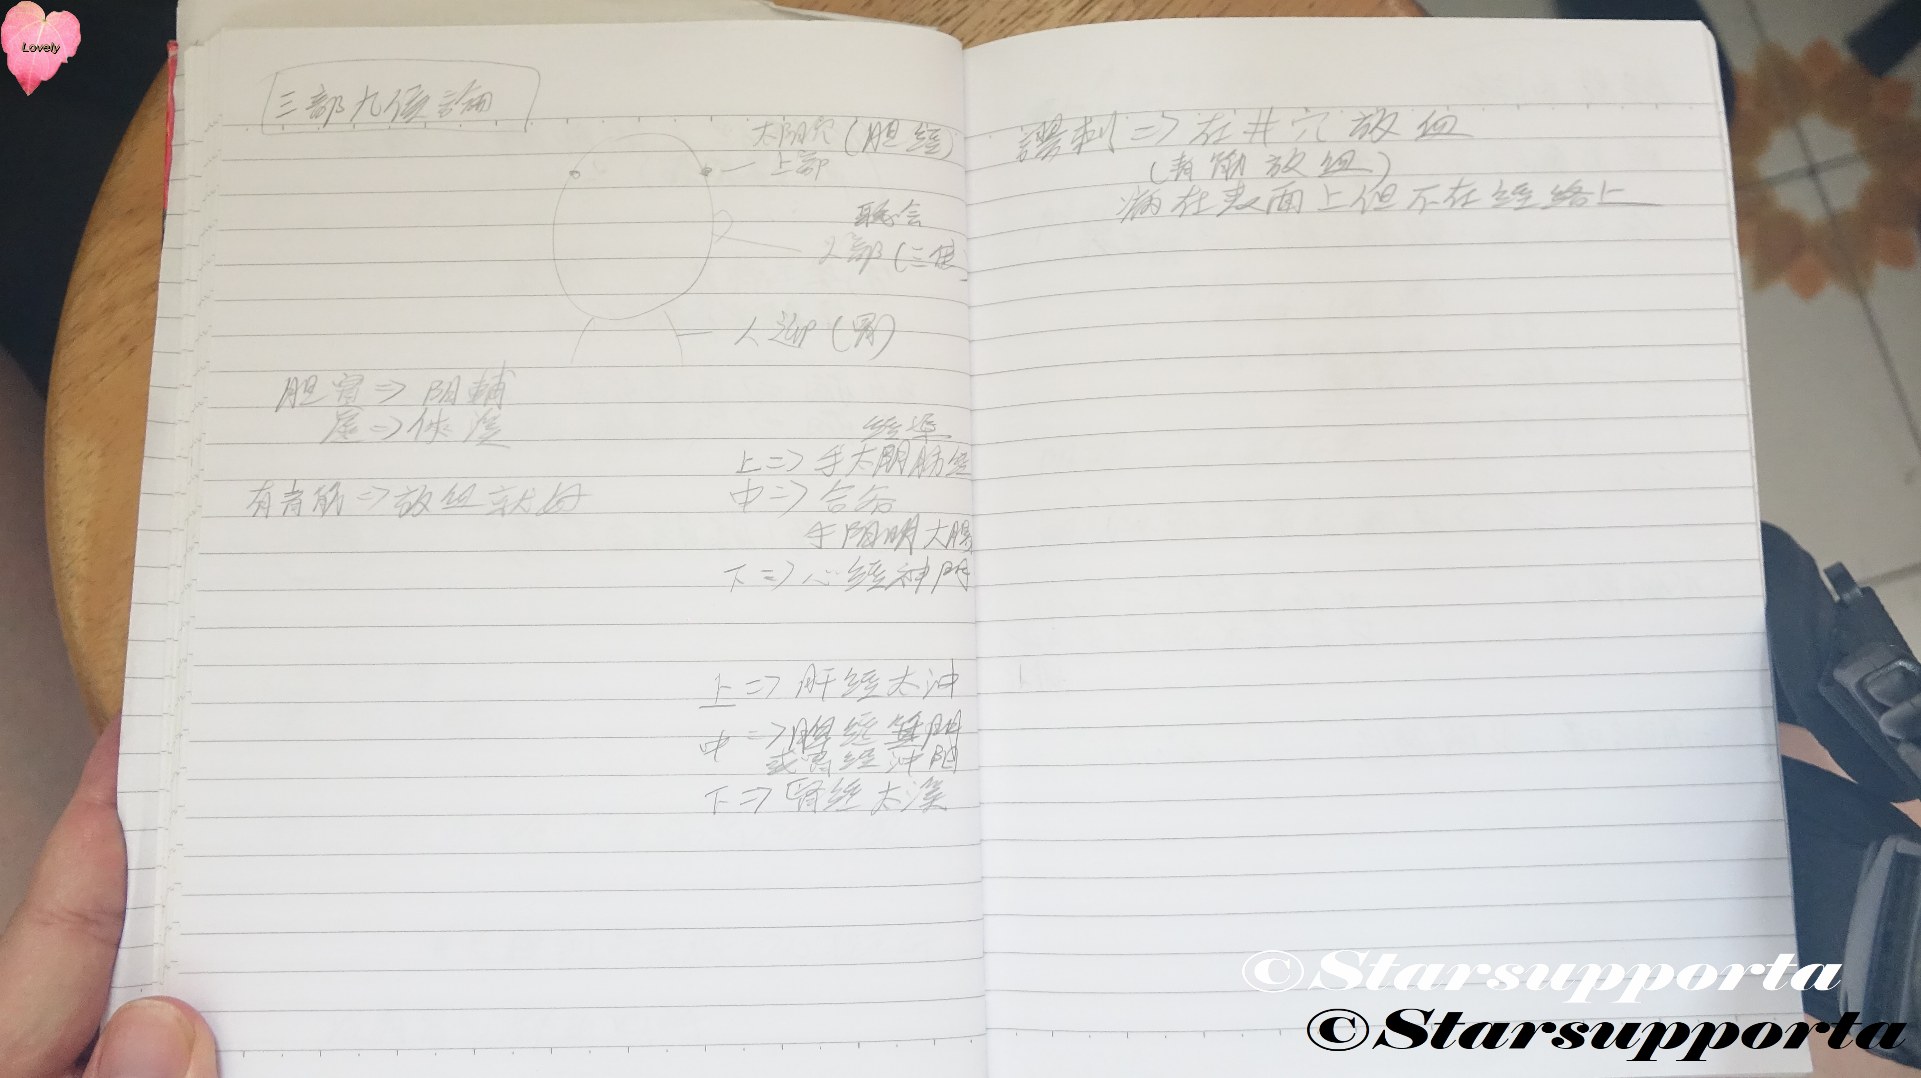 Lovely
三部九候論
太陽穴(胆經)
上部
聽会
人部(三焦
人迎(胃)
胆實=>陽輔
虛=>俠溪
有青筋=>放血就好
上=>手太陰肺經
中=>合谷
手陽明大腸
下=>心經神門
上=>肝經太沖
中=>脾經箕門
或胃經沖陽
下=>腎經太溪
謬刺=>在井穴放血
(青筋放血)
病在表面上但不在經絡上
©Starsupporta
©Starsupporta